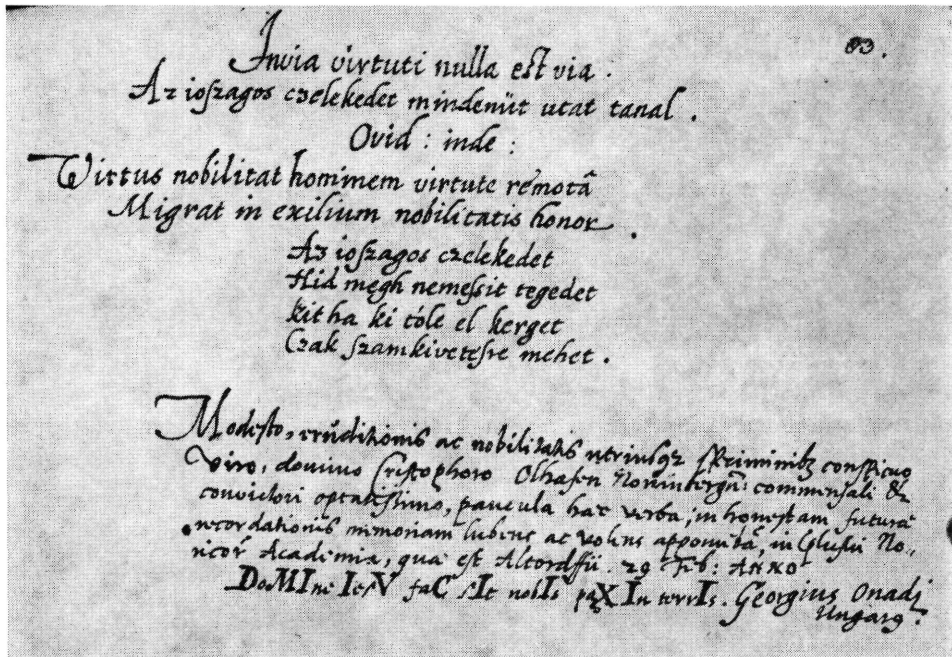 83.
Invia virtuti nulla est via.
Az ioszagos czelekedet mindenüt utat tanal.
Ovid: inde:
Virtus nobilitat hominem virtute remotâ
Migrat in exilium nobilitatis honor.
Az ioszagos czelekedet
Hid megh nemessit tegedet
kit ha ki tóle el kerget
Czak szamkivetesre mehet.
Modesto, erûditionis ac nobilitatis utriusqz conspicuo
viro, domino Cristophoro Olhafen commensali &
convictori optatissimo, paucula hac verba, in honestam futuræ
recordationis memoriam lubens ac volens in No-
Academia, quæ est 29 Feb: ANNO
DoMIne IesV faC sIt nobIs paX In terrIs. Georgius Onadj
Ungarg.